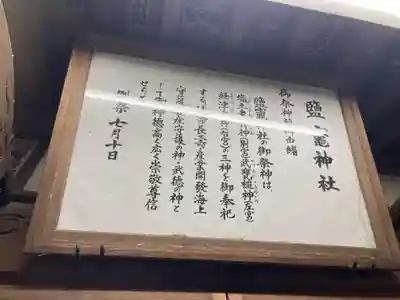 鹽竈神社
御祭神竝御由緒
鹽竈神社の御祭神は、
塩土老翁神(別宮)武甕槌神(左宮)
経津主神(右宮)の三神を御奉祀
する。宗長主産業開發の海上
守護、産守護の神武徳の神と
して御神徳高く広く崇敬尊信
せらる
例祭七月十日